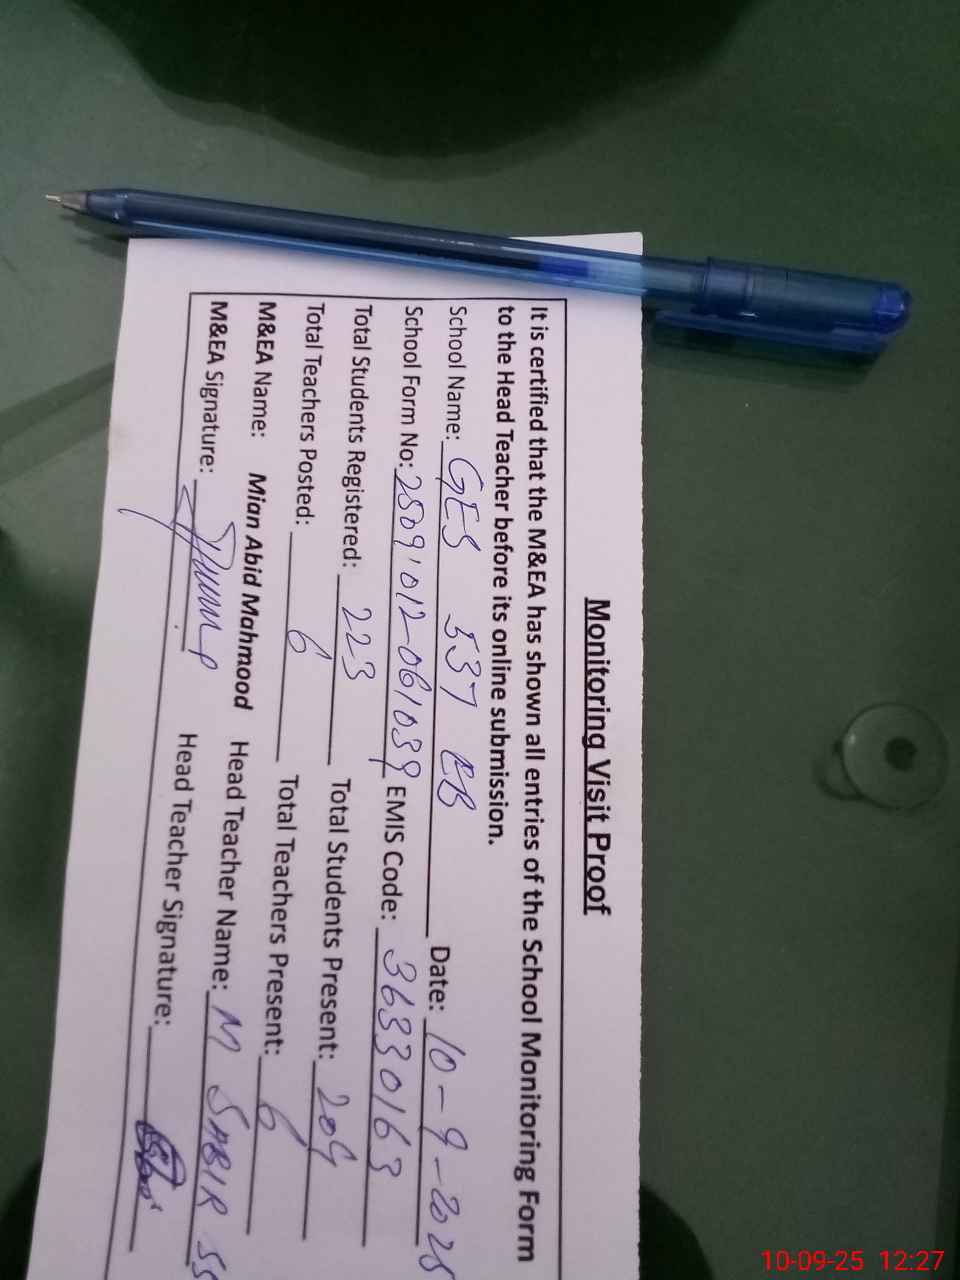 Monitoring Visit Proof
It is certified that the M&EA has shown all entries of the School Monitoring Form
to the Head Teacher before its online submission.
School Name: GES 537 EB Date: 10-9-2025
School Form No: 2509'012-061039 EMIS Code: 36330163
Total Students Registered: 223 Total Students Present: 209
Total Teachers Posted: 6 Total Teachers Present: 6
M&EA Name: Mian Abid Mahmood Head Teacher Name: M SABIR
M&EA Signature: Head Teacher Signature:
10-09-25 12:27